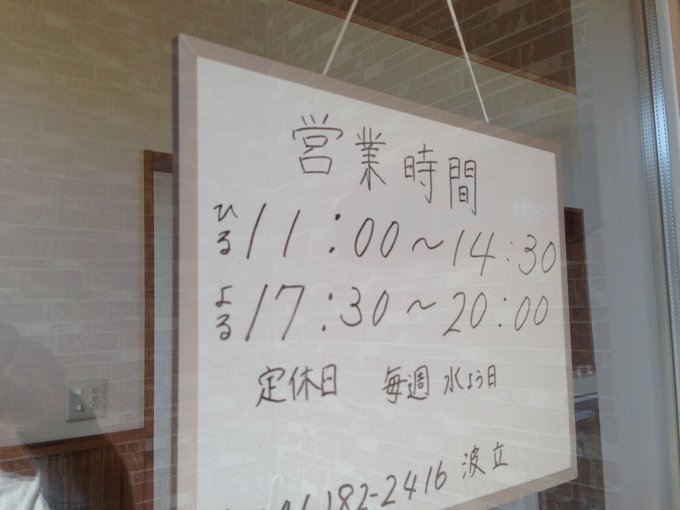 営業時間
ひる 11:00〜14:30
よる 17:30〜20:00
定休日 毎週 水よう日
182-2416 波立